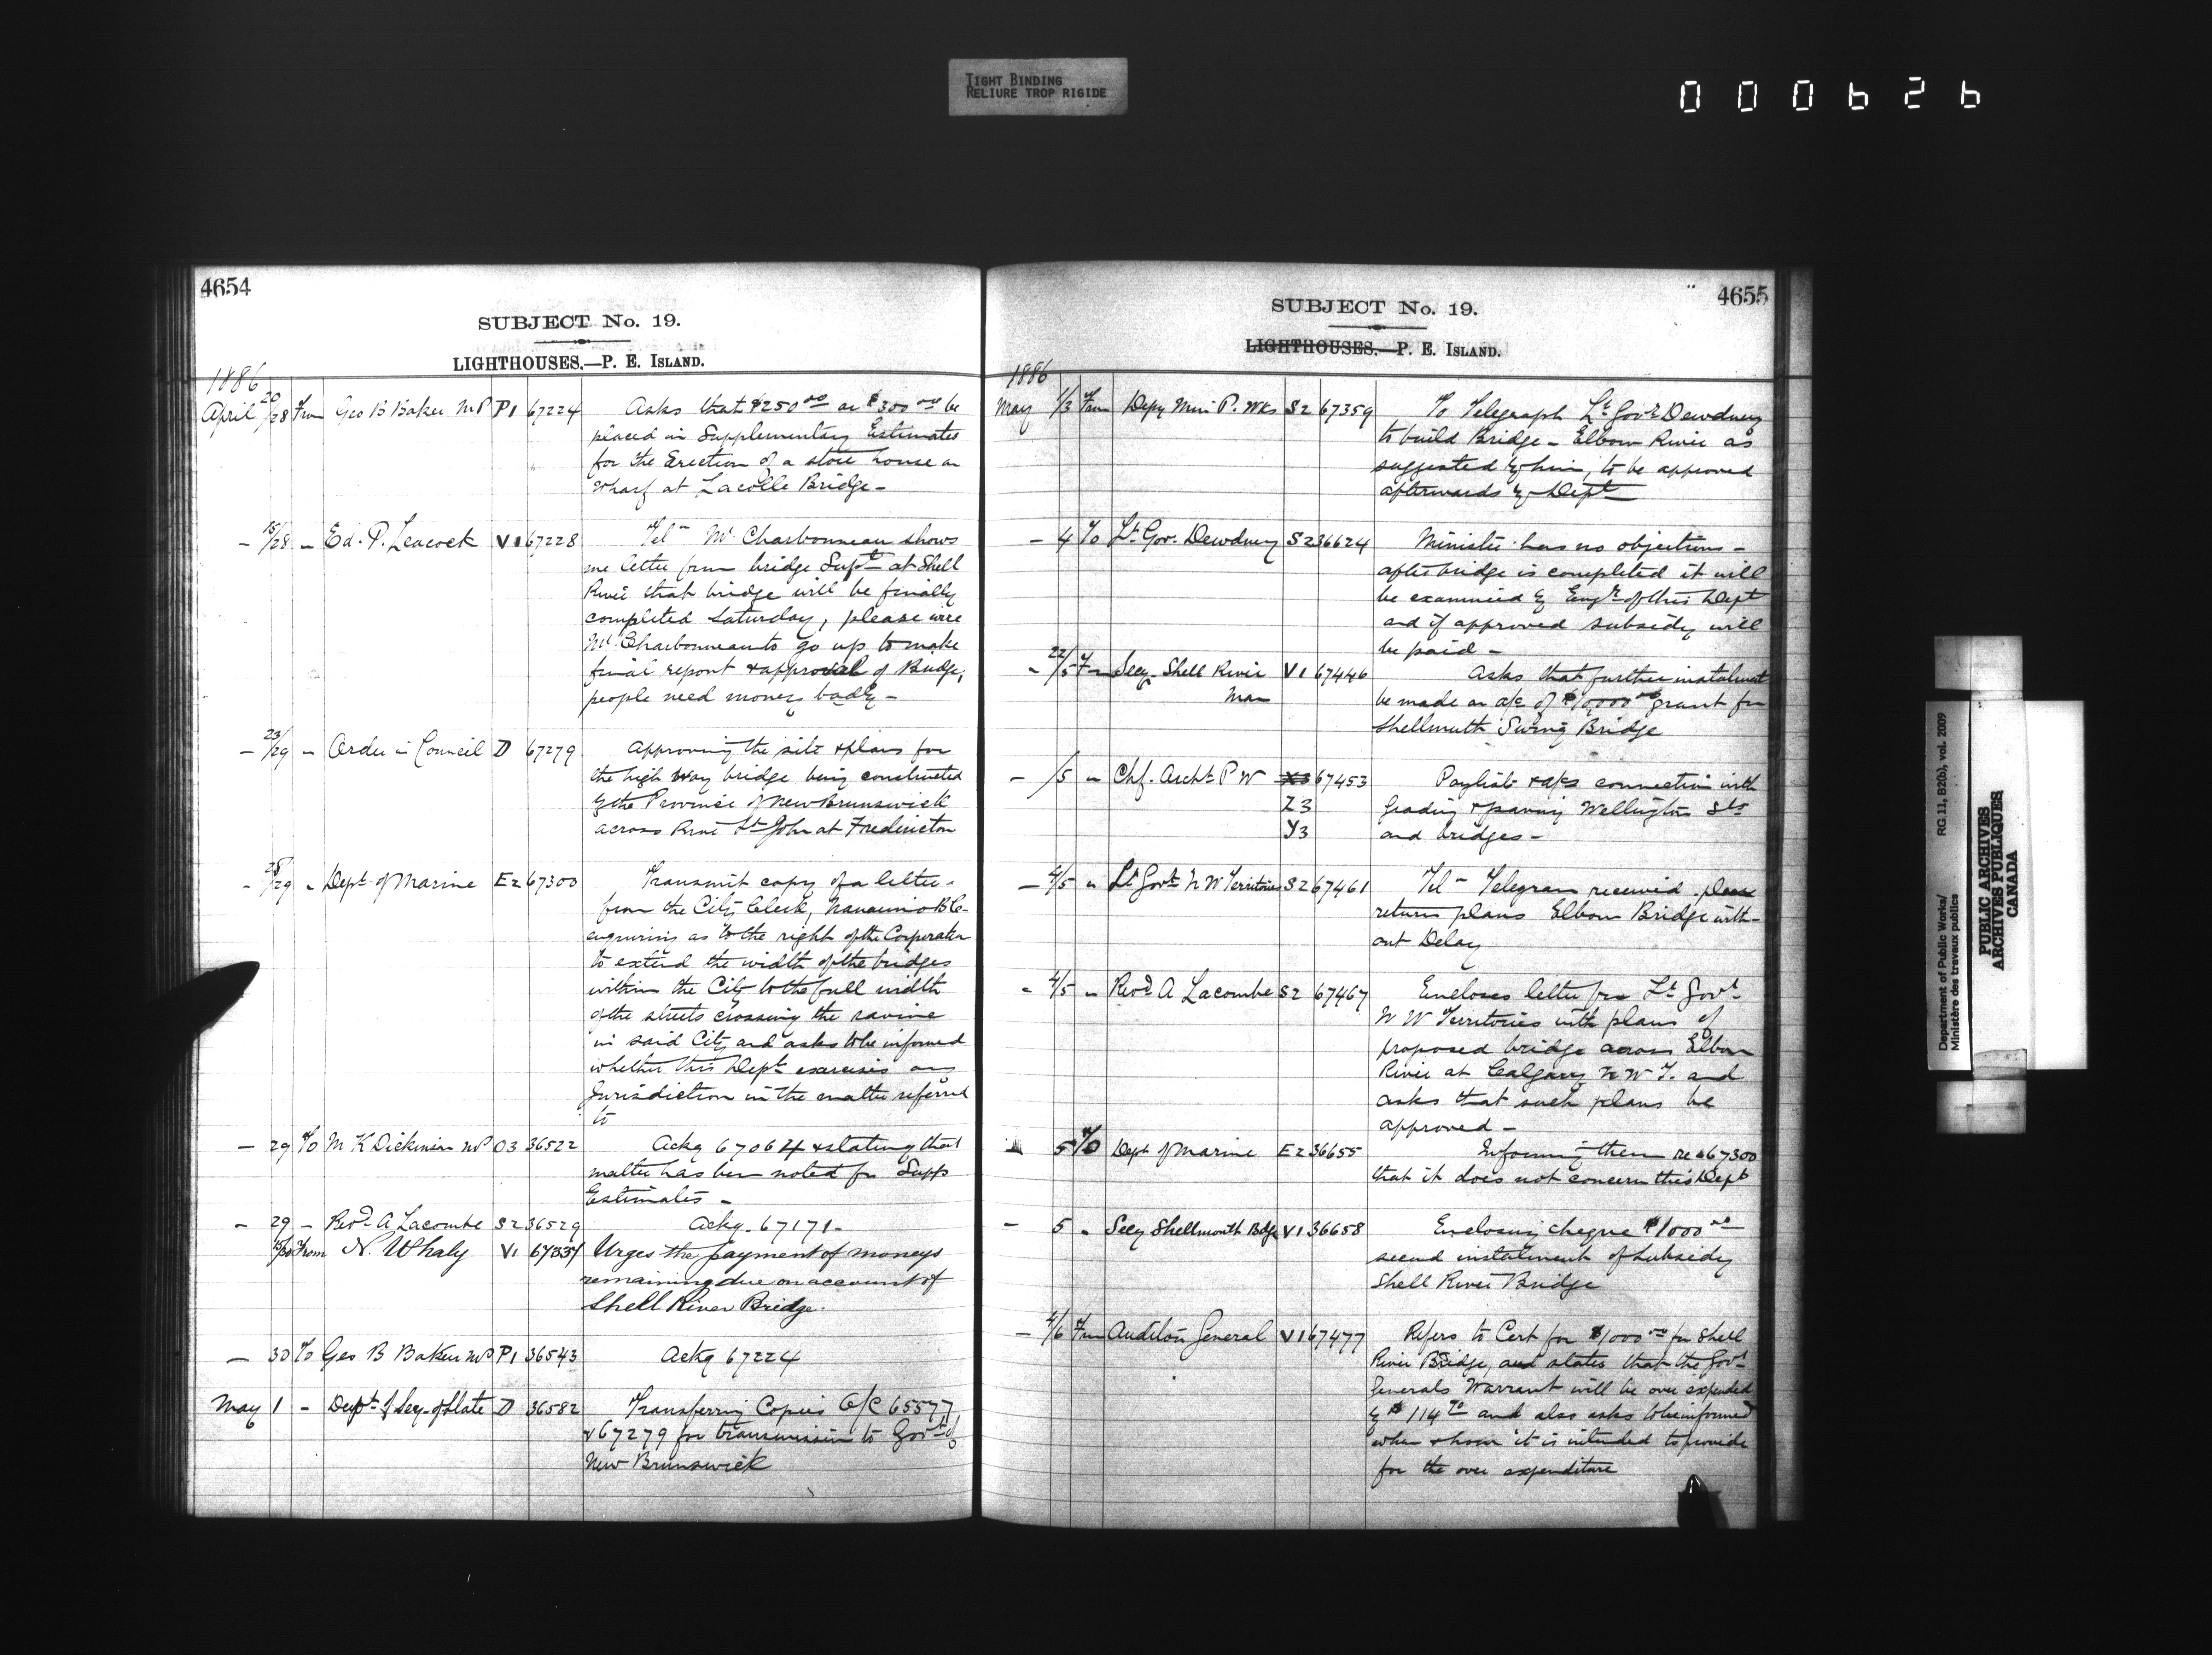 TIGHT BINDING
RELIURE TROP RIGIDE
000626
4654
SUBJECT No. 19.
LIGHTHOUSES.—P. E. ISLAND.
1886
April 20/28 From Geo B Baker M P P1 67224 Asks that $250 00 or $300 00 be
placed in Supplementary Estimates
for the Erection of a store house on
Wharf at Lacolle Bridge –
– 15/28 – Ed. P. Leacock V1 67228 Tel – Mr Charbonneau shows
me letter from bridge Supt at Shell
River that bridge will be finally
completed Saturday, please wire
Mr Charbonneau to go up to make
final report & approval of Bridge,
people need money badly –
– 23/29 – Order in Council D 67279 Approving the site & plans for
the high way bridge being constructed
by the Province of New Brunswick
across River St John at Fredericton
– 28/29 – Dept of Marine E2 67300 Transmit copy of a letter
from the City Clerk, Nanaimo B.C.
enquiring as to the right of the Corporation
to extend the width of the bridges
within the City to the full width
of the streets crossing the ravine
in said City and asks to be informed
whether this Dept exercises any
Jurisdiction in the matter referred
to
– 29 To M K Dickinson MP O3 36522 Ackg 67064 & stating that
matter has been noted for Supps
Estimates –
– 29 – Revd A Lacombe S2 36529 Ackg. 67171 –
From N. Whaly V1 67334 Urges the payment of moneys
remaining due on account of
Shell River Bridge.
– 30 To Geo B Baker MP P1 36543 Ackg 67224
May 1 – Dept of Secy of State D 36582 Transferring Copies O/C 65577
& 67279 for transmission to Govt of
New Brunswick
4655
SUBJECT No. 19.
LIGHTHOUSES.—P. E. ISLAND.
1886
May 1/3 From Depy Min P. Wks S2 67359 To Telegraph Lt Govr Dewdney
to build Bridge – Elbow River as
suggested by him, to be approved
afterwards by Dept
– 4 To Lt Gov. Dewdney S2 36624 Minister has no objections –
after bridge is completed it will
be examined by Engr of this Dept
and if approved subsidy will
be paid –
– 22/5 From Secy Shell River V1 67446 Asks that further instalment
Man be made on a/c of $10,000 00 grant for
Shellmuth Swing Bridge
– /5 – Chf. Archt P W X3 67453 Paylists & a/cs connection with
Z3 Grading & paving Wellington Sts
Y3 and bridges –
– 4/5 – Lt Govr N W Territories S2 67461 Tel – Telegram received please
return plans Elbow Bridge with-
out Delay
– 4/5 – Revd A Lacombe S2 67467 Encloses letter from Lt Govr
N W Territories with plans of
proposed bridge across Elbow
River at Calgary N W T. and
asks that such plans be
approved –
5 To Dept of Marine E2 36655 Informing them re 67300
that it does not concern this Dept
– 5 – Secy Shellmouth Bdg V1 36658 Enclosing cheque $1000 00
second instalment of Subsidy
Shell River Bridge
– 4/6 From Auditor General V1 67477 Refers to Cert for $1000 00 for Shell
River Bridge, and states that the Govr
Generals Warrant will be over expended
by $114 70 and also asks to be informed
when & how it is intended to provide
for the over expenditure
Department of Public Works/ RG 11, B2(b), vol. 2009
Ministère des travaux publics
PUBLIC ARCHIVES
ARCHIVES PUBLIQUES
CANADA